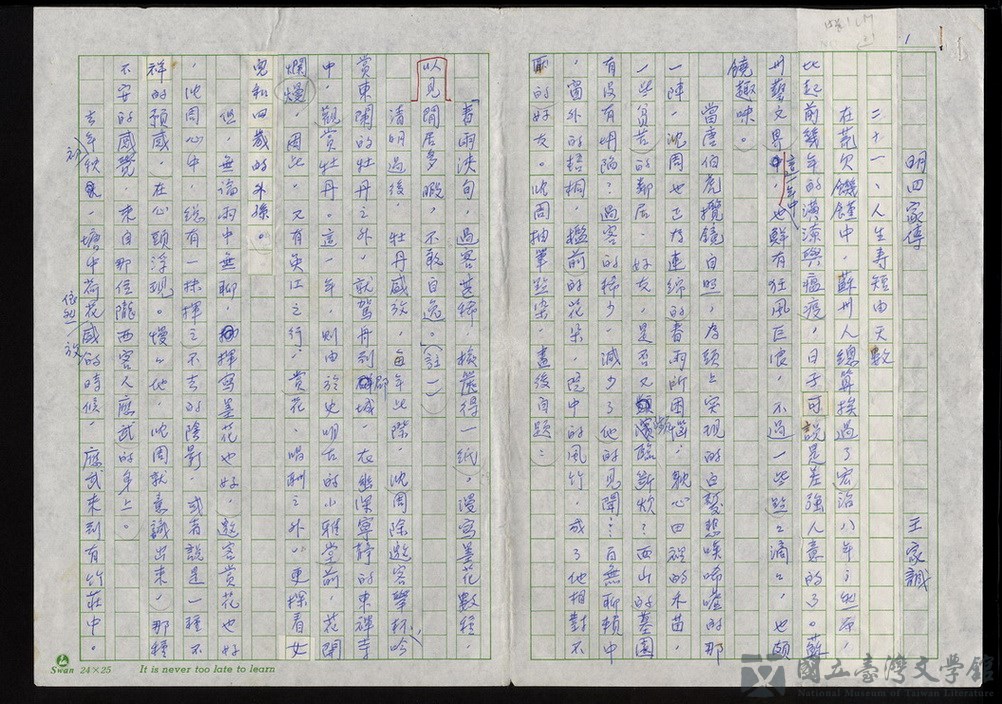 1
明四家傳　　王家誠
二十一、人生壽短由天數
在荒欠饑饉中，蘇州人總算挨過了宏治八年；
比起前幾年的潢潦與瘟疫，日子可說是差強人意的了。蘇
州藝文界這一年中，也鮮有狂風巨浪，不過一些點點滴滴，也頗
饒趣味。
當唐伯虎攬鏡自照，為頭上突現的白髮悲嘆唏噓的那
一陣，沈周也正為連綿的春雨所困惱；耽心田裡的禾苗，
一些貧苦的鄰居、好友，是否又瀕臨斷炊？西山的墓園
有沒有崩陷？過客的稀少，減少了他的見聞；百無聊賴中
，窗外的梧桐，檻前的花朵，院中的風竹，成了他相對不
的好友。沈周抽筆點染，畫後自題：
「春雨浹旬，過客甚稀，檢篋得一紙，漫寫墨花數種，
以見閒居多暇，不敢自逸。」（註一）
清明過後，牡丹盛放，每年此際，沈周除邀客舉杯，吟
賞東闌的牡丹之外，就駕舟到郡城，在幽深寧靜的東禪寺
中，觀賞牡丹。這一年，則由於史明古的小雅堂前，花開
爛熳，因此，又有吳江之行，賞花、唱酬之外，更探看女
兒和四歲的外孫。
但，無論雨中無聊，揮寫墨花也好，邀客賞花也好
，沈周心中，總有一抹揮之不去的陰影，或者說是一種不
祥的預感，在心頭浮現。慢慢地，沈周就意識出來，那種
不安的感覺，來自那位隴西客人應武的身上。
去年秋初，塘中荷花依然盛放的時候，應武來到有竹莊中。
Swan 24×25　It is never too late to learn
國立臺灣文學館
National Museum of Taiwan Literature